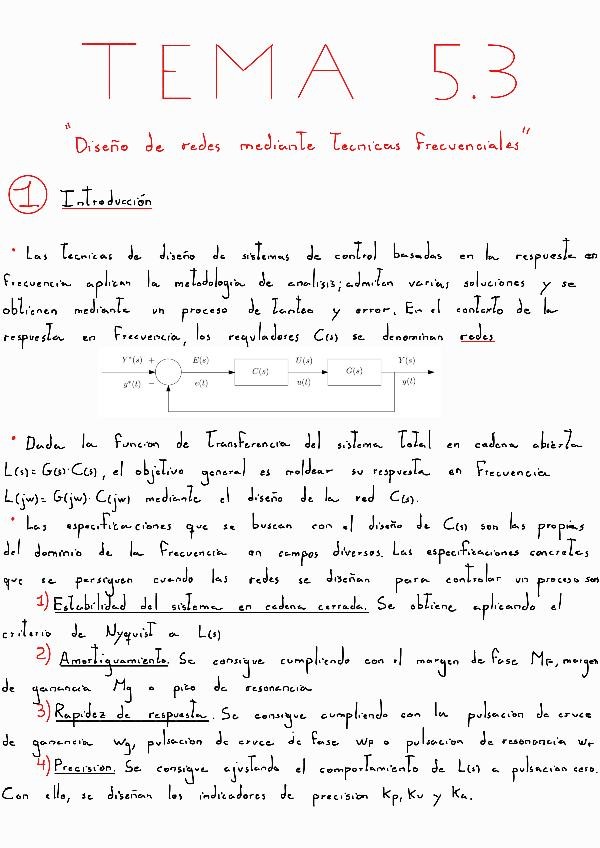 TEMA 5.3
"Diseño de redes mediante tecnicas frecuenciales"
1 Introducción
• Las tecnicas de diseño de sistemas de control basadas en la respuesta en
frecuencia aplican la metodologia de analisis; admiten varias soluciones y se
obtienen mediante un proceso de tanteo y error. En el contexto de la
respuesta en frecuencia, los reguladores C(s) se denominan redes
Y*(s) + E(s) C(s) U(s) G(s) Y(s)
y*(t) − e(t) u(t) y(t)
• Dada la funcion de transferencia del sistema total en cadena abierta
L(s)= G(s)·C(s), el objetivo general es moldear su respuesta en frecuencia
L(jw)= G(jw)·C(jw) mediante el diseño de la red C(s).
• Las especificaciones que se buscan con el diseño de C(s) son las propias
del dominio de la frecuencia en campos diversos. Las especificaciones concretas
que se persiguen cuando las redes se diseñan para controlar un proceso son
1) Estabilidad del sistema en cadena cerrada. Se obtiene aplicando el
criterio de Nyquist a L(s)
2) Amortiguamiento. Se consigue cumpliendo con el margen de fase MF, margen
de ganancia Mg o pico de resonancia
3) Rapidez de respuesta. Se consigue cumpliendo con la pulsacion de cruce
de ganancia wg, pulsacion de cruce de fase wp o pulsacion de resonancia wr
4) Precision. Se consigue ajustando el comportamiento de L(s) a pulsacion cero.
Con ello, se diseñan los indicadores de precision Kp, Kv y Ka.